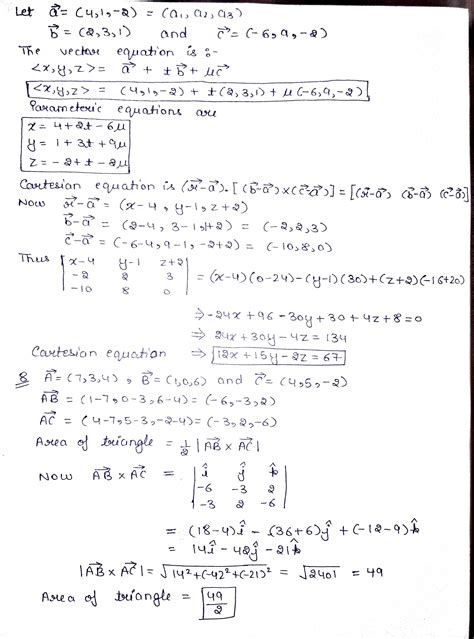 Let a⃗ = (4,1,-2) = (a₁, a₂, a₃)
b⃗ = (2,3,1) and c⃗ = (-6,9,-2)
The vector equation is :-
<x,y,z> = a⃗ + tb⃗ + μc⃗
<x,y,z> = (4,1,-2) + t(2,3,1) + μ(-6,9,-2)
Parameteric equations are
x = 4+2t-6μ
y = 1+3t+9μ
z = -2+t-2μ
Cartesian equation is (r⃗-a⃗).[(b⃗-a⃗)×(c⃗-a⃗)] = [(r⃗-a⃗) (b⃗-a⃗) (c⃗-a⃗)]
Now r⃗-a⃗ = (x-4, y-1, z+2)
b⃗-a⃗ = (2-4, 3-1, 1+2) = (-2,2,3)
c⃗-a⃗ = (-6-4, 9-1, -2+2) = (-10,8,0)
Thus | x-4 y-1 z+2 |
| -2 2 3 | = (x-4)(0-24)-(y-1)(30)+(z+2)(-16+20)
| -10 8 0 |
⇒ -24x+96-30y+30+4z+8=0
⇒ 24x+30y-4z=134
Cartesian equation ⇒ 12x+15y-2z=67
8 A⃗ = (7,3,4), B⃗ = (1,0,6) and C⃗ = (4,5,-2)
AB⃗ = (1-7, 0-3, 6-4) = (-6,-3,2)
AC⃗ = (4-7, 5-3, -2-4) = (-3,2,-6)
Area of triangle = 1/2 |AB⃗ × AC⃗|
Now AB⃗ × AC⃗ = | î ĵ k̂ |
| -6 -3 2 |
| -3 2 -6 |
= (18-4)î - (36+6)ĵ + (-12-9)k̂
= 14î - 42ĵ - 21k̂
|AB⃗ × AC⃗| = √14²+(-42)²+(-21)² = √2401 = 49
Area of triangle = 49/2